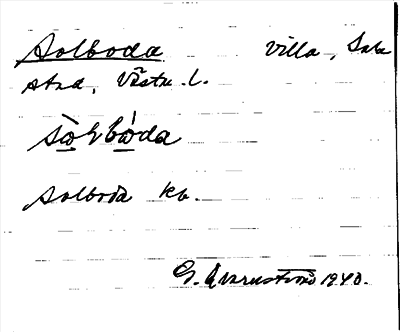 Solboda Villa, Sala
stad, Västm. l.
sò̲lbó̲da
Solboda kv.
G. Qvarnström 1940.